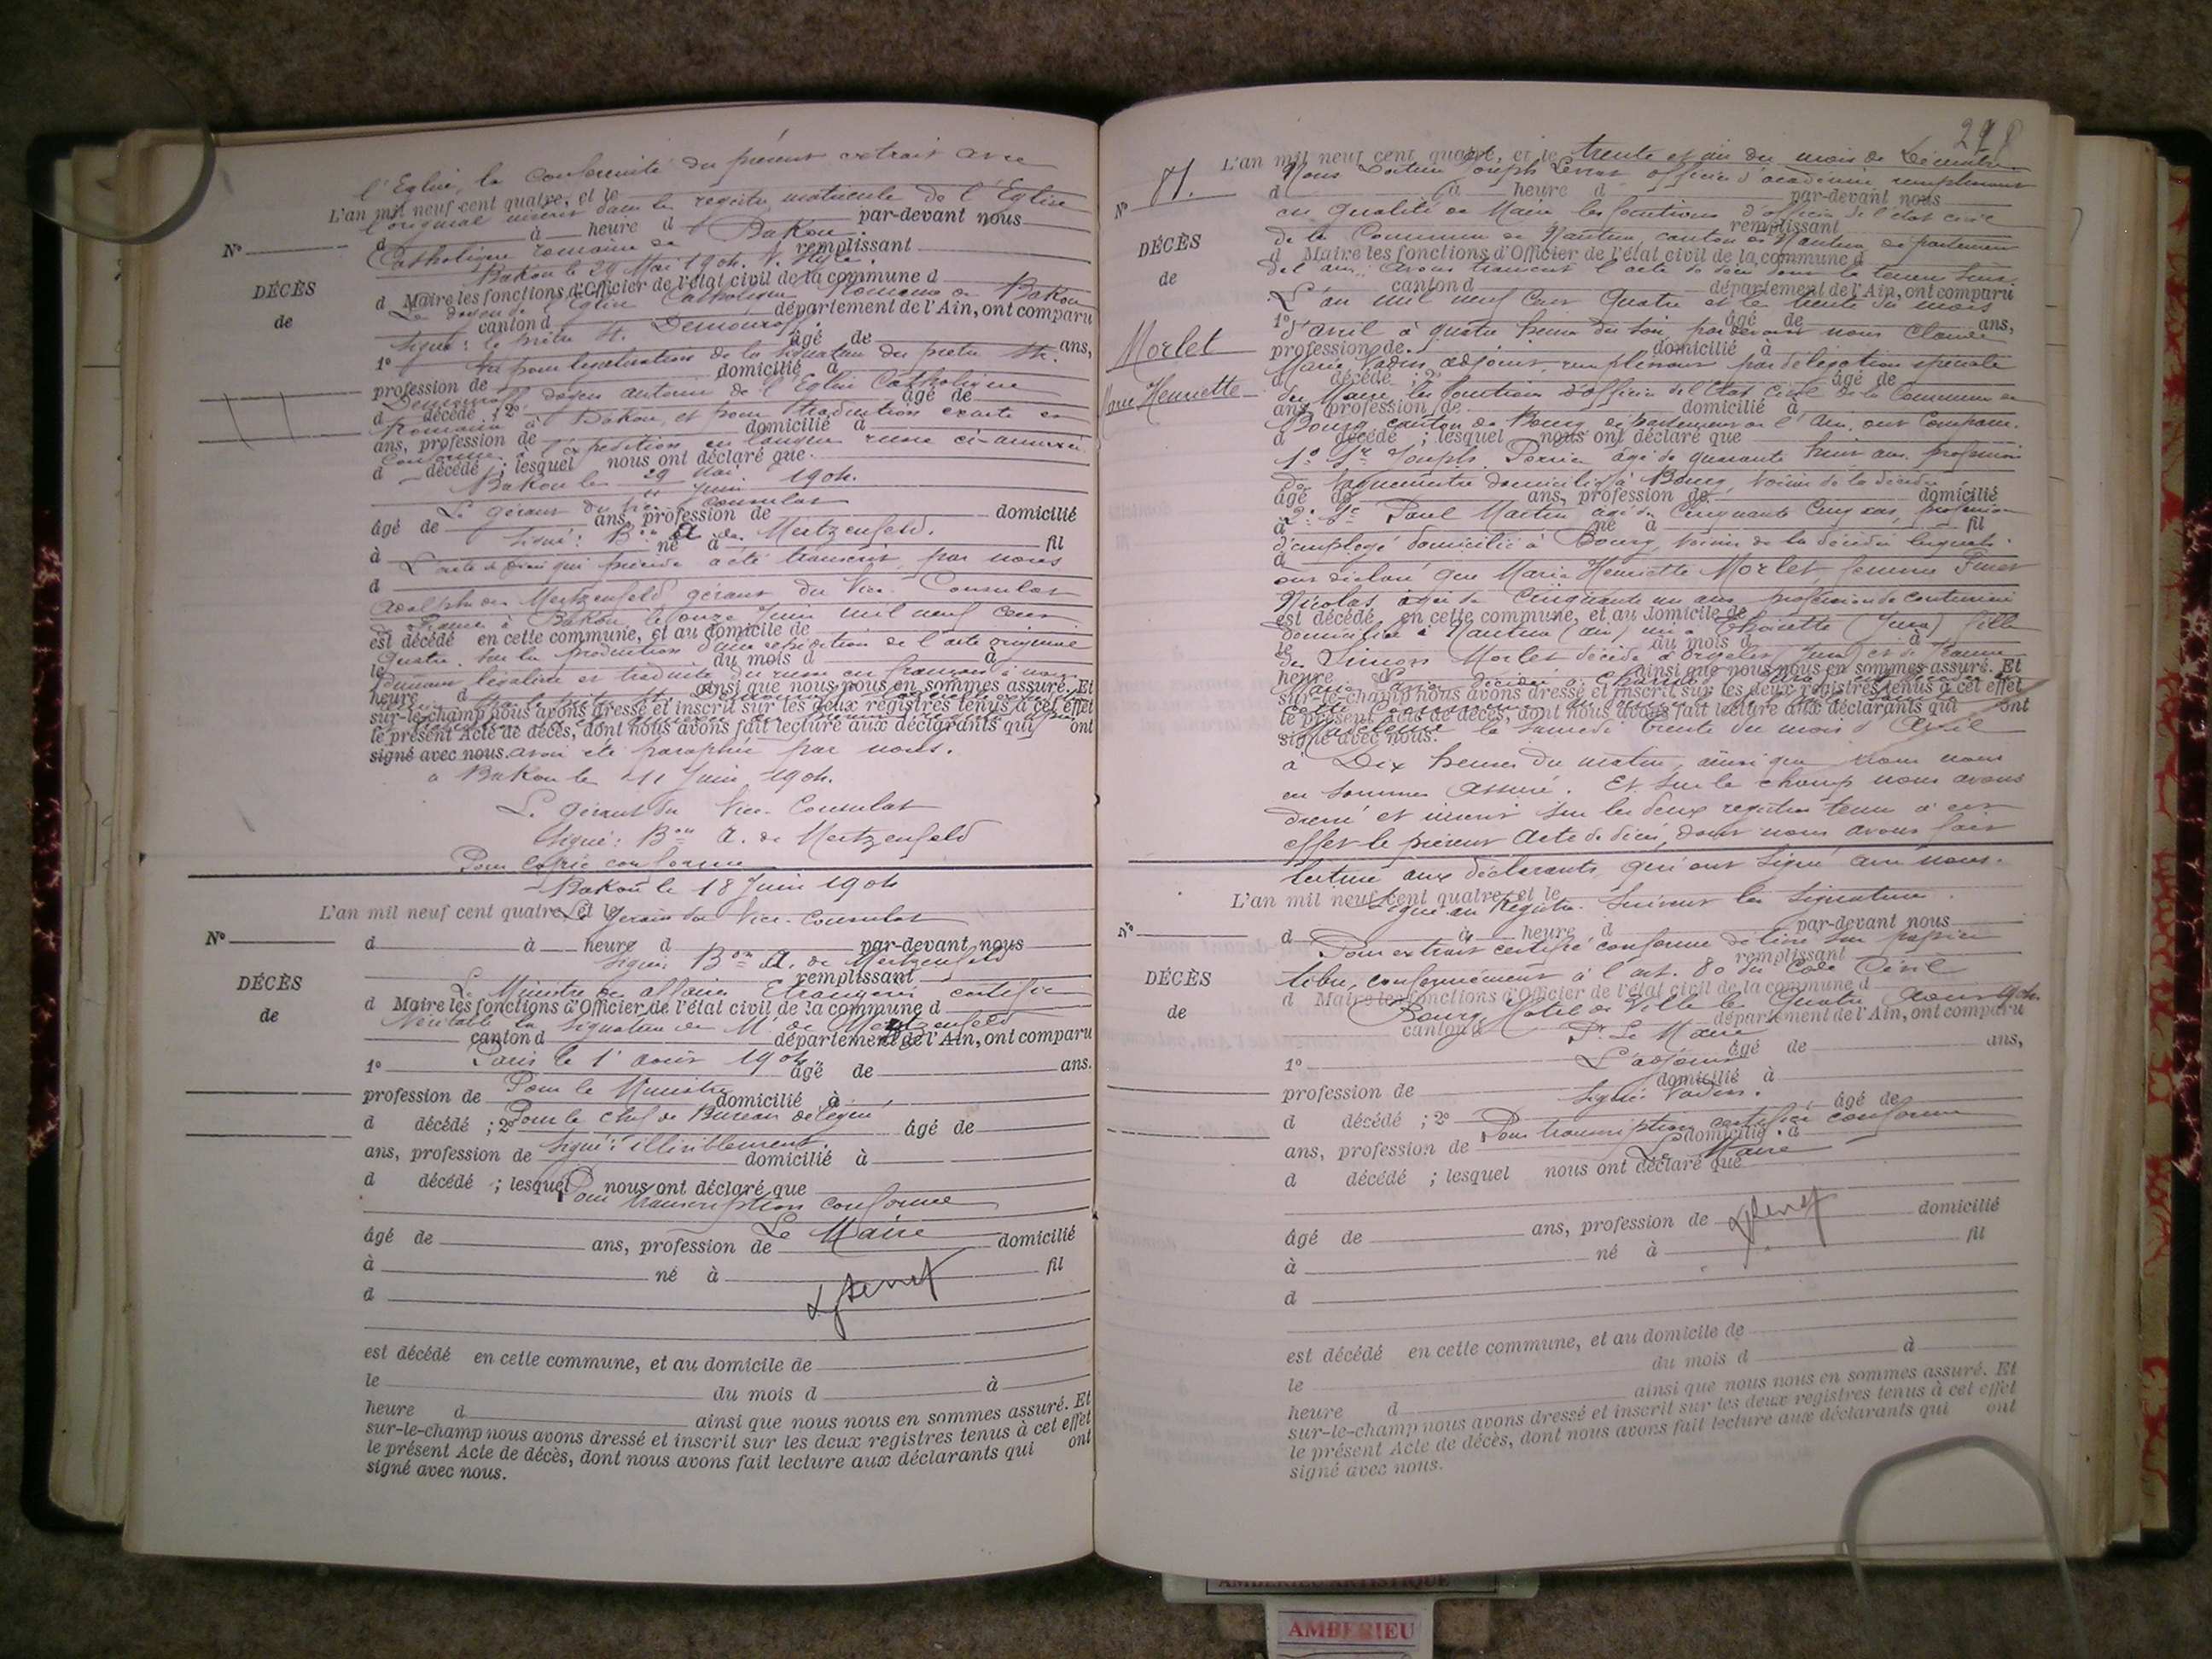 l'Eglise, la Conformité du présent extrait avec
L'an mil neuf cent quatre, et le
l'original inscrit dans le registre matricule de l'Eglise
d à heure d par-devant nous
Catholique romaine de Bakou.
remplissant
Bakou le 29 Mai 1904.
N°
DÉCÈS
de
d Maire les fonctions d'Officier de l'état civil de la commune d
Le doyen de l'Eglise Catholique Romaine de Bakou
canton d département de l'Ain, ont comparu
Signé: le prêtre St.
1° âgé de ans,
Vu pour legalisation de la signature du prêtre St.
profession de domicilié à
doyen de l'Eglise Catholique
d décédé ; 2° âgé de
Romaine à Bakou, et pour traduction exacte et
ans, profession de domicilié à
Conforme à l'expédition en langue russe ci-annexée.
d décédé ; lesquel nous ont déclaré que
Bakou le 29 Mai 1904.
11 Juin
Le gérant du Vice-consulat
âgé de ans, profession de domicilié
Signé: Bon A. de Mertzenfeld.
à né à fil
L'acte de décès qui précède a été transcrit, par nous
d
Adolphe de Mertzenfeld gérant du Vice-Consulat
de France à Bakou, le onze Juin mil neuf cent
est décédé en cette commune, et au domicile de
quatre, sur la production d'une expédition de l'acte original
le du mois d à
dûment légalisé et traduite du russe en français
heure d ainsi que nous nous en sommes assuré. Et
sur-le-champ nous avons dressé et inscrit sur les deux registres tenus à cet effet
le présent Acte de décès, dont nous avons fait lecture aux déclarants qui ont
signé avec nous. avoir été paraphée par nous.
à Bakou le 11 Juin 1904.
Le gérant du Vice-Consulat
Signé: Bon A. de Mertzenfeld
Pour copie conforme
Bakou le 18 Juin 1904
L'an mil neuf cent quatre, et le
Le gérant du Vice-Consulat
N°
d à heure d par-devant nous
Signé: Bon A. de Mertzenfeld
remplissant
DÉCÈS
de
Le Ministre des affaires Etrangères certifie
d Maire les fonctions d'Officier de l'état civil de la commune d
Véritable la signature de M. de Mertzenfeld
canton d département de l'Ain, ont comparu
Paris le 1er août 1904
1° âgé de ans.
Pour le Ministre
profession de domicilié à
Pour le chef de Bureau délégué
d décédé ; 2° âgé de
Signé: illisiblement.
ans, profession de domicilié à
d décédé ; lesquel nous ont déclaré que
Pour transcription conforme
Le Maire
âgé de ans, profession de domicilié
à né à fil
d
est décédé en cette commune, et au domicile de
le du mois d à
heure d ainsi que nous nous en sommes assuré. Et
sur-le-champ nous avons dressé et inscrit sur les deux registres tenus à cet effet
le présent Acte de décès, dont nous avons fait lecture aux déclarants qui ont
signé avec nous.
L'an mil neuf cent quatre, et le trente et un du mois de Décembre
N° 81.
Nous Docteur Joseph officier d'académie, remplissant
d à heure d par-devant nous
en qualité de Maire les fonctions d'officier de l'état civil
remplissant
DÉCÈS
de
de la Commune de Nantua, canton de Nantua département
d Maire les fonctions d'Officier de l'état civil de la commune d
de l'ain, avons transcrit l'acte de décès dont la teneur suit
canton d département de l'Ain, ont comparu
L'an mil neuf cent quatre et le trente du mois
1° âgé de ans,
d'avril à quatre heures du soir par devant nous Claude
Morlet
Marie Henriette
profession de domicilié à
Marie Vadin, adjoint, remplissant par délégation spéciale
d décédé ; 2° âgé de
du Maire, les fonctions d'officier de l'Etat Civil de la Commune de
ans, profession de domicilié à
Bourg, canton de Bourg département de l'Ain, ont comparu.
d décédé ; lesquel nous ont déclaré que
1° Sr Joseph Perrier âgé de quarante huit ans, profession
de domicilié à Bourg, voisin de la décédée
âgé de ans, profession de domicilié
2° Sr Paul Martin âgé de Cinquante Cinq ans, profession
à né à fil
d'employé domicilié à Bourg, voisin de la décédée lesquels
d
ont déclaré que Marie Henriette Morlet, femme
Nicolas âgée de Cinquante un ans profession de couturière
est décédé en cette commune, et au domicile de
domiciliée à Nantua (ain) née à (Jura) fille
le du mois d à
de Simon Morlet décédé à Orgelet (Jura) et de Jeanne
heure d ainsi que nous nous en sommes assuré. Et
sur-le-champ nous avons dressé et inscrit sur les deux registres tenus à cet effet
le présent Acte de décès, dont nous avons fait lecture aux déclarants qui ont
signé avec nous.
le Samedi trente du mois d'Avril
à Dix heures du matin, ainsi que nous nous
en sommes assuré. Et sur le champ nous avons
dressé et inscrit sur les deux registres tenus à cet
effet le présent acte de décès, dont nous avons fait
lecture aux déclarants, qui ont signé avec nous.
L'an mil neuf cent quatre, et le
Signé au Registre. Suivent les signatures.
N°
d à heure d par-devant nous
Pour extrait certifié conforme délivré sur papier
remplissant
DÉCÈS
de
libre, conformément à l'art. 80 du Code Civil
d Maire les fonctions d'Officier de l'état civil de la commune d
Bourg, Hôtel de Ville le Quatre Aout 1904.
canton d département de l'Ain, ont comparu
Pr Le Maire
1° âgé de ans,
L'adjoint
profession de domicilié à
Signé: Vadin.
d décédé ; 2° âgé de
Pour transcription certifiée conforme
ans, profession de domicilié à
Le Maire
d décédé ; lesquel nous ont déclaré que
âgé de ans, profession de domicilié
à né à fil
d
est décédé en cette commune, et au domicile de
le du mois d à
heure d ainsi que nous nous en sommes assuré. Et
sur-le-champ nous avons dressé et inscrit sur les deux registres tenus à cet effet
le présent Acte de décès, dont nous avons fait lecture aux déclarants qui ont
signé avec nous.
AMBERIEU ARTISTIQUE
AMBERIEU